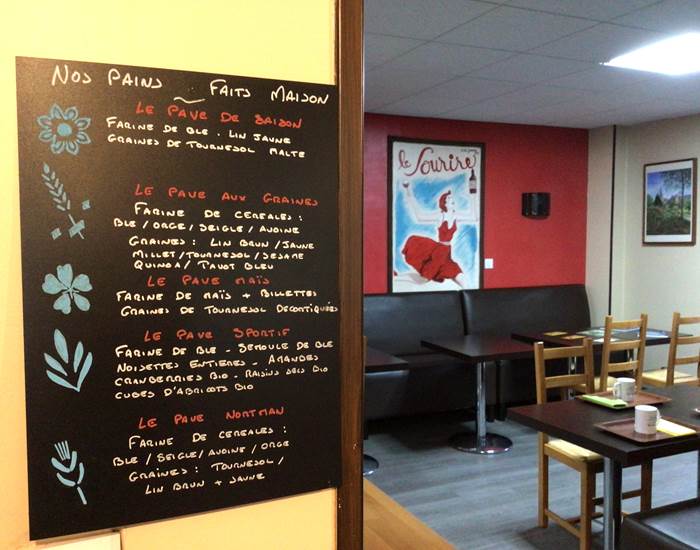 Nos pains Faits Maison
Le Pave de Saison
Farine de ble . Lin jaune
Graines de tournesol malte
Le Pave aux Graines
Farine de cereales :
Ble / orge / seigle / avoine
Graines : Lin brun / jaune
Millet / tournesol / sesame
Quinoa / Pavot bleu
Le Pave Maïs
Farine de maïs + Billettes
Graines de tournesol decortiquées
Le Pave Sportif
Farine de ble - semoule de ble
Noisettes entieres - Amandes
Cranberries bio - raisins secs bio
Cubes d'abricots bio
Le Pave Nortman
Farine de cereales :
Ble / seigle / avoine / orge
Graines : Tournesol /
Lin brun + jaune
le Sourire